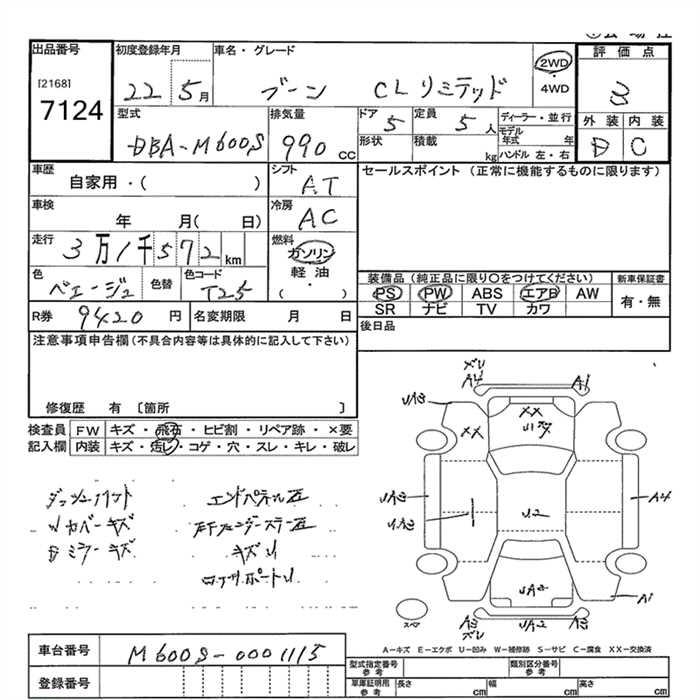 出品番号
[2168]
7124
初度登録年月
22 5月
車名・グレード
ブーン CLリミテッド
2WD
・
4WD
評価点
3
外装 内装
D C
型式
DBA-M600S
排気量
990 cc
ドア
5
定員
5人
形状
積載
kg
ディーラー・並行
モデル
年式 年
ハンドル 左・右
車歴
自家用・( )
シフト
AT
セールスポイント (正常に機能するものに限ります)
車検
年 月( 日)
冷房
AC
走行
3万1千572km
燃料
ガソリン
軽油
( ・ )
色
ベージュ
色替
色コード
T25
装備品(純正品に限り○をつけてください)
PS PW ABS エアB AW
SR ナビ TV カワ
新車保証書
有・無
R券 9420円
名変期限 月 日
後日品
注意事項申告欄(不具合内容等は具体的に記入して下さい)
修復歴 有 [箇所 ]
検査員
記入欄
FW キズ・飛石・ヒビ割・リペア跡・×要
内装 キズ・汚レ・コゲ・穴・スレ・キレ・破レ
Wカバーキズ
キズU
エンドパネル
XX
XX
A4
A1
UA3
UA3
UA3
U2
A4
UA2
A3
UA2
A1
スペア
A-キズ E-エクボ U-凹み W-補修跡 S-サビ C-腐食 XX-交換済
車台番号 M600S-0001115
登録番号
型式指定番号
参考
類別区分番号
参考
車庫証明用
参考
長さ cm
幅 cm
高さ cm